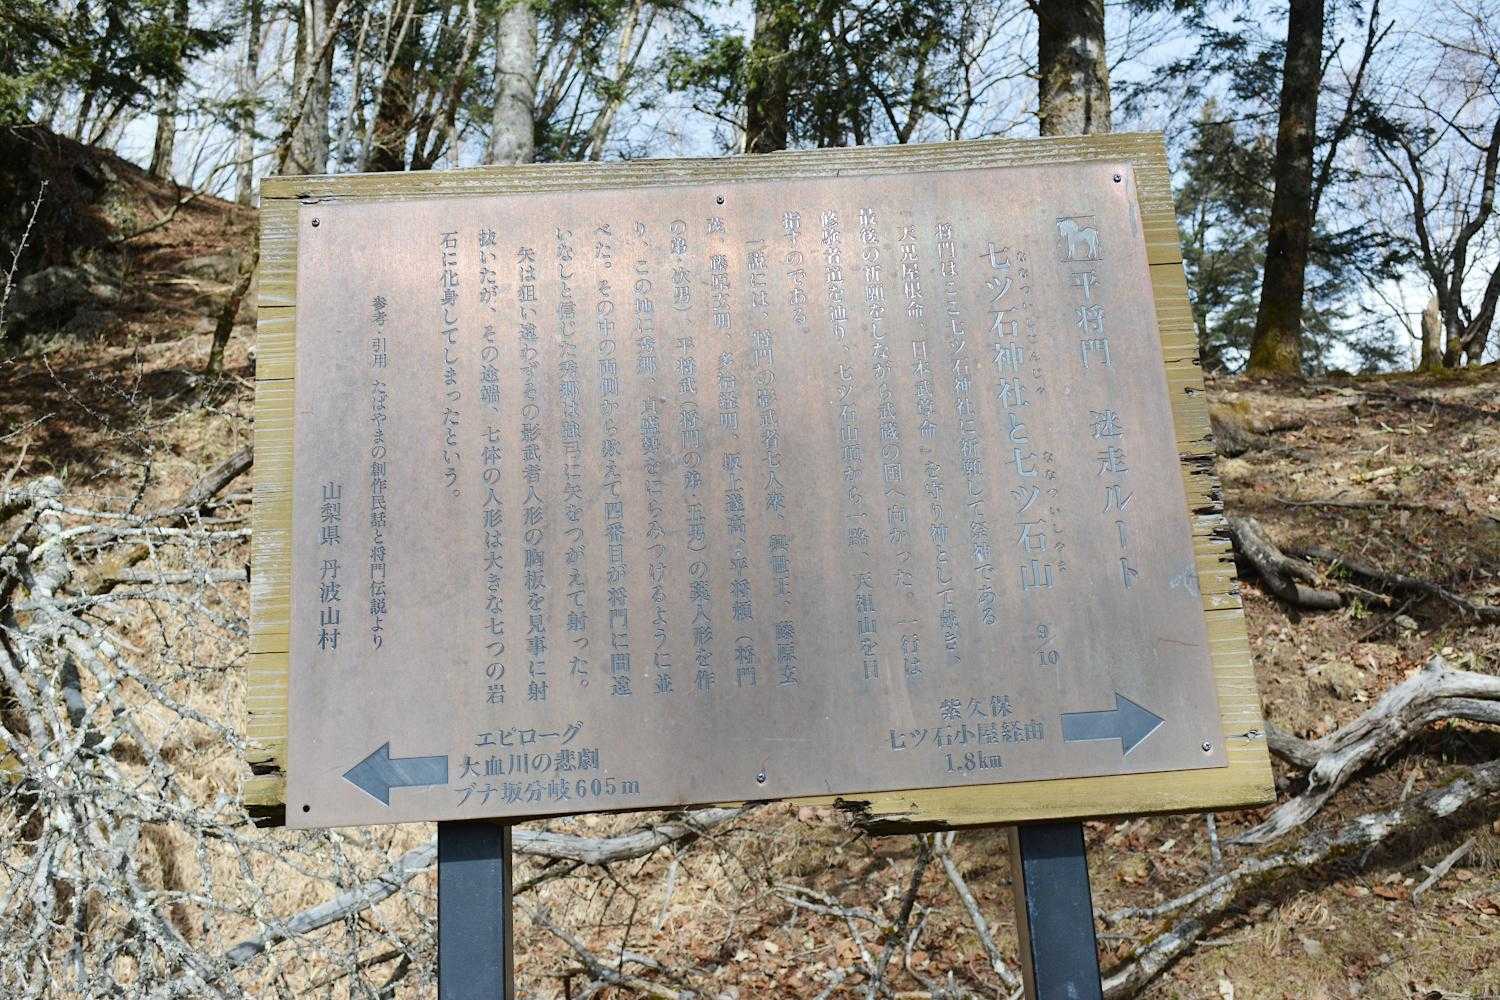 平将門 迷走ルート
七ツ石神社と七ツ石山 9/10
ななついしじんじゃ ななついしやま
将門はここ七ツ石神社に祈願して祭神である
『天児屋根命、日本武尊命』を守り神として戴き、
最後の祈願をしながら武蔵の国へ向かった。一行は
修験者道を辿り、七ツ石山頂から一路、天祖山を目
指すのである。
一説には、将門の影武者七人衆、興世王、藤原玄
茂、藤原玄明、多治経明、坂上遂高、平将頼（将門
の弟・次男）、平将武（将門の弟・五男）の藁人形を作
り、この地に秀郷、貞盛勢をにらみつけるように並
べた。その中の両側から数えて四番目が将門に間違
いなしと信じた秀郷は強弓に矢をつがえて射った。
矢は狙い違わずその影武者人形の胸板を見事に射
抜いたが、その途端、七体の人形は大きな七つの岩
石に化身してしまったという。
参考・引用 たばやまの創作民話と将門伝説より
山梨県 丹波山村
紫久保
七ツ石小屋経由
1.8km
エピローグ
大血川の悲劇
ブナ坂分岐605m